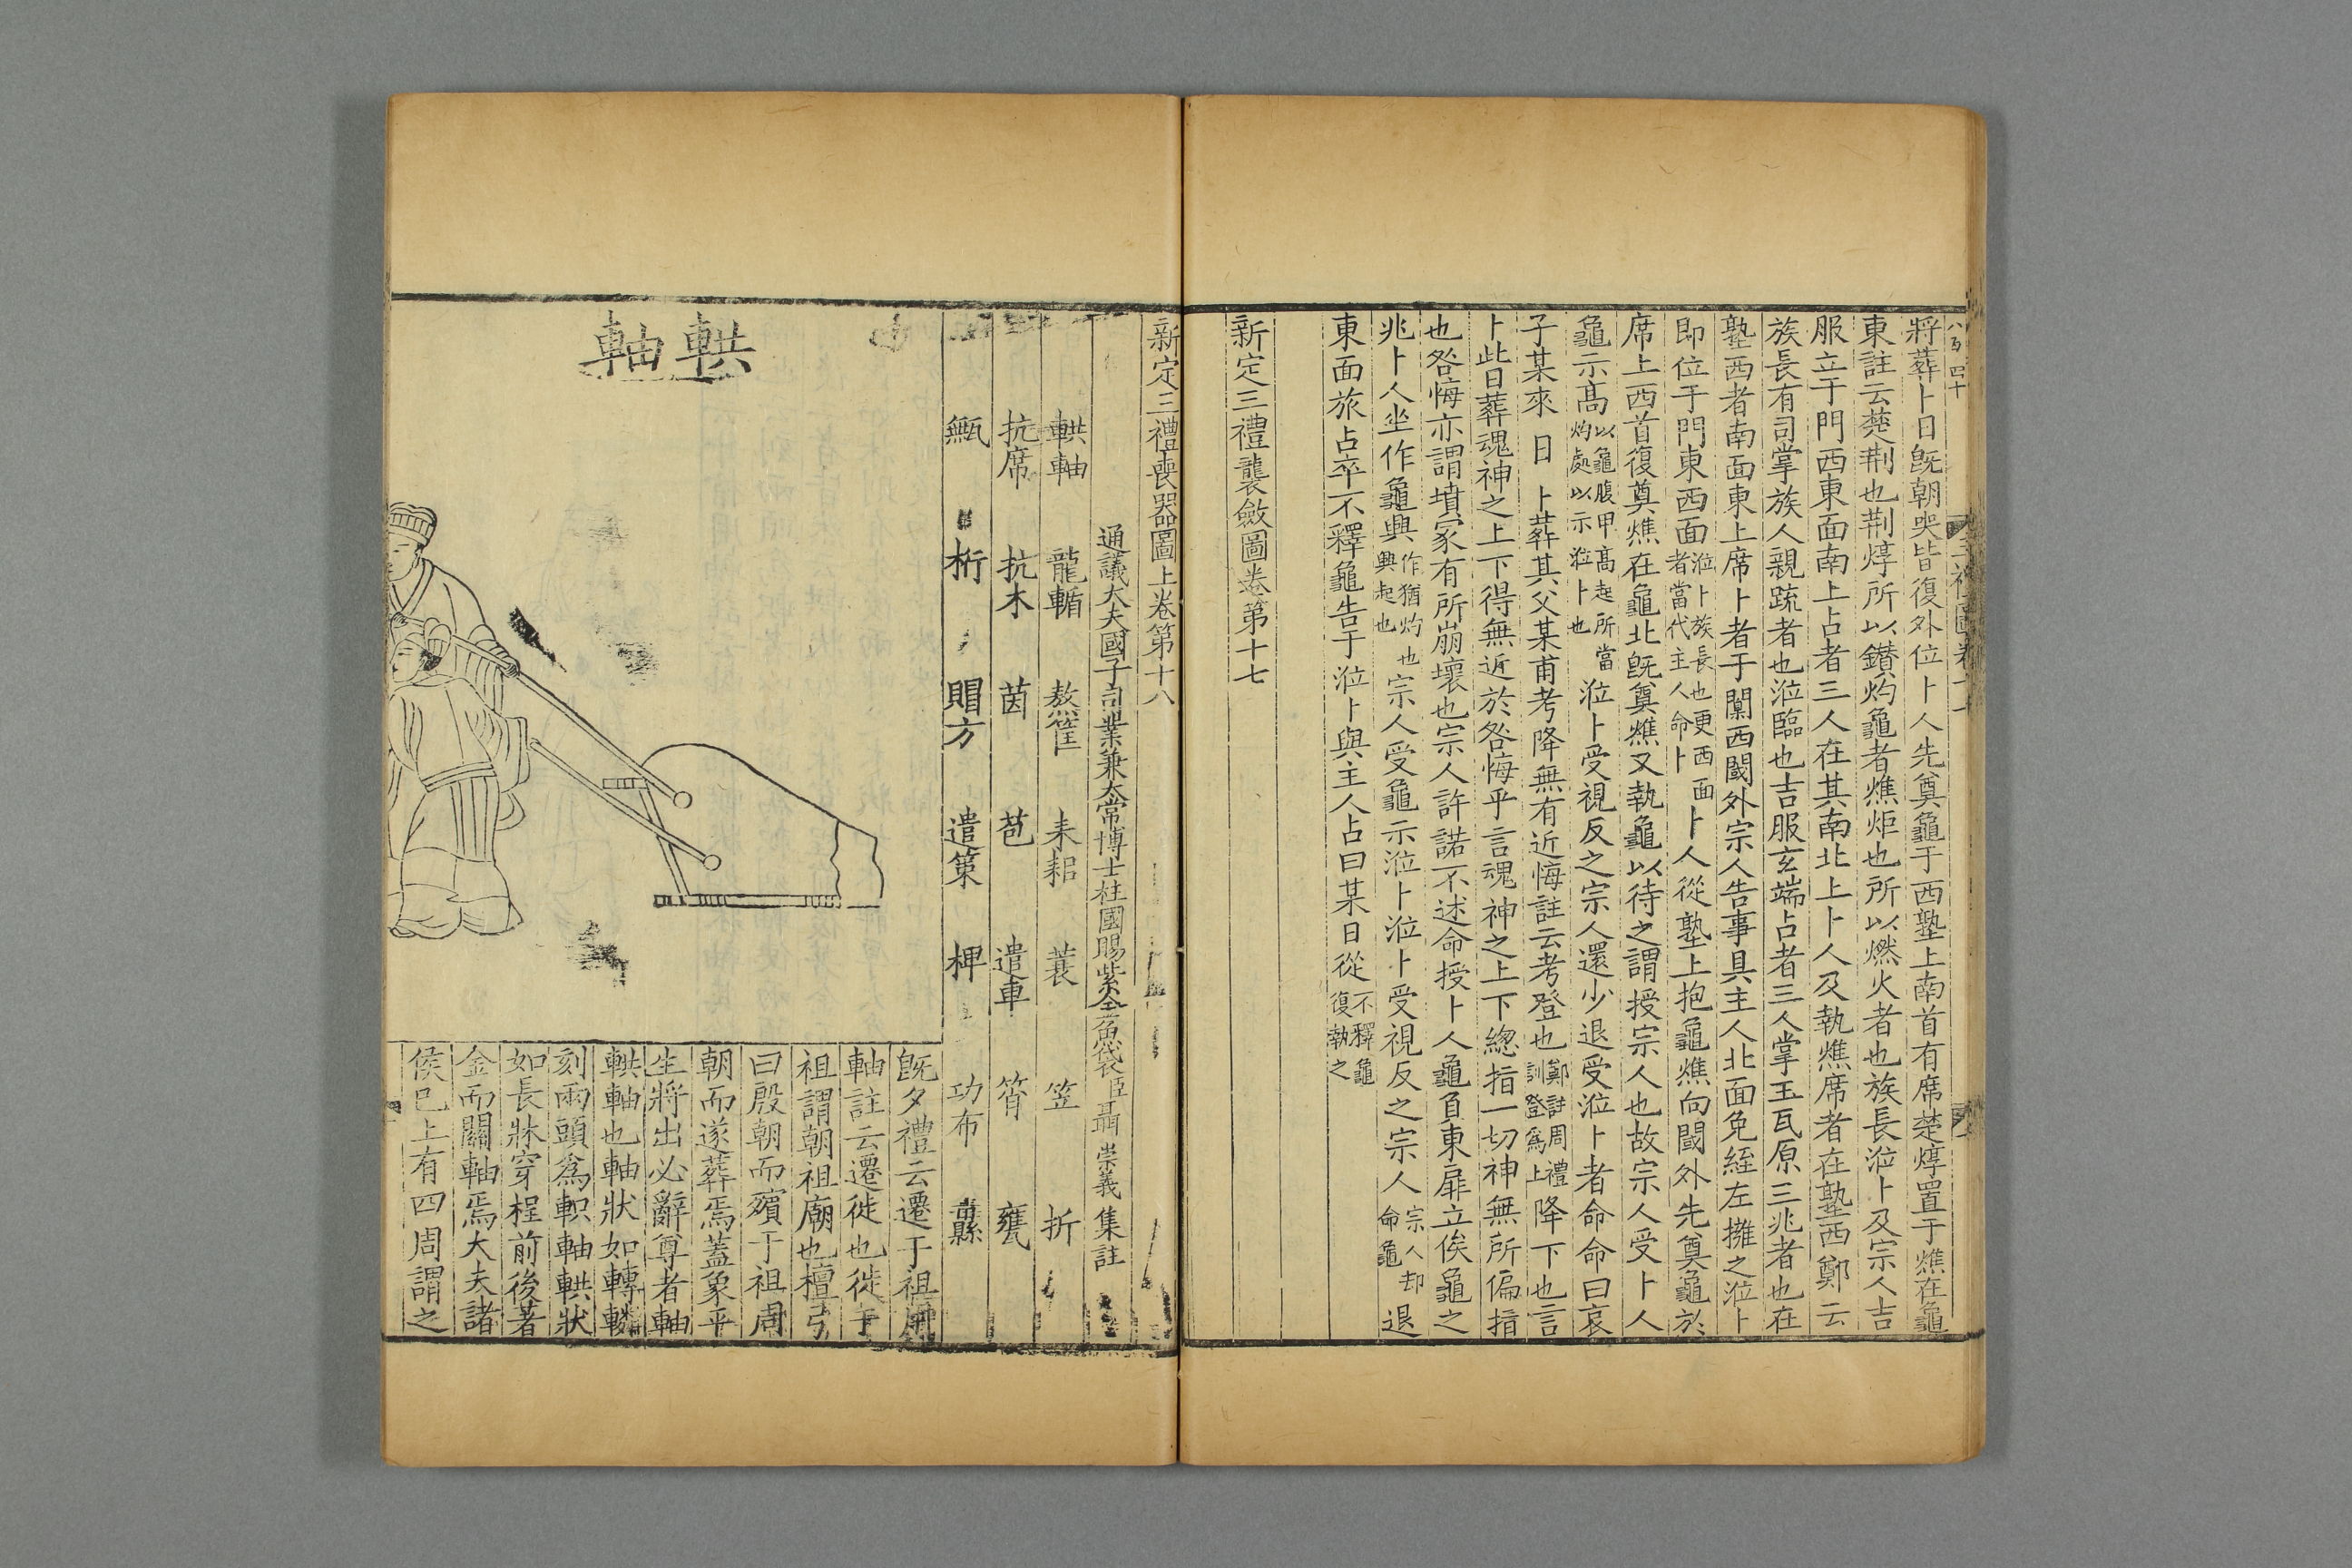 八百四十
將葬卜日既朝哭皆復外位卜人先奠龜于西塾上南首有席楚焞置于燋在龜
東註云楚荆也荆焞所以鑚灼龜者燋炬也所以燃火者也族長涖卜及宗人吉
服立于門西東面南上占者三人在其南北上卜人及執燋席者在塾西鄭云
族長有司掌族人親䟽者也涖臨也吉服玄端占者三人掌玉瓦原三兆者也在
塾西者南面東上席卜者于闑西閾外宗人告事具主人北面免絰左擁之涖卜
即位于門東西面涖卜族長也更西面者當代主人命卜卜人從塾上抱龜燋向閾外先奠龜於
席上西首復奠燋在龜北既奠燋又執龜以待之謂授宗人也故宗人受卜人
龜示髙以龜腹甲髙起所當灼處以示涖卜也涖卜受視反之宗人還少退受涖卜者命命曰哀
子某來日卜葬其父某甫考降無有近悔註云考登也鄭註周禮訓登爲上降下也言
卜此日葬魂神之上下得無近於咎悔乎言魂神之上下緫指一切神無所偏指
也咎悔亦謂墳冢有所崩壞也宗人許諾不述命授卜人龜負東扉立俟龜之
兆卜人坐作龜興作猶灼也興起也宗人受龜示涖卜涖卜受視反之宗人宗人却命龜退
東面旅占卒不釋龜告于涖卜與主人占曰某日從不釋龜復執之
新定三禮襲斂圖卷第十七
新定三禮喪器圖上卷第十八
通議大夫國子司業兼太常博士柱國賜紫金魚袋臣聶崇義集註
輁軸 龍輴 熬筐 耒耜 蓑 笠 折
抗席 抗木 茵 苞 遣車 筲 甕
甒 桁 賵方 遣策 椑 功布 纛
輁軸
既夕禮云遷于祖用
軸註云遷徙也徙于
祖謂朝祖廟也檀弓
曰殷朝而殯于祖周
朝而遂葬焉蓋象平
生將出必辭尊者軸
輁軸也軸狀如轉轔
刻兩頭爲軹軸輁狀
如長牀穿桯前後著
金而關軸焉大夫諸
侯已上有四周謂之